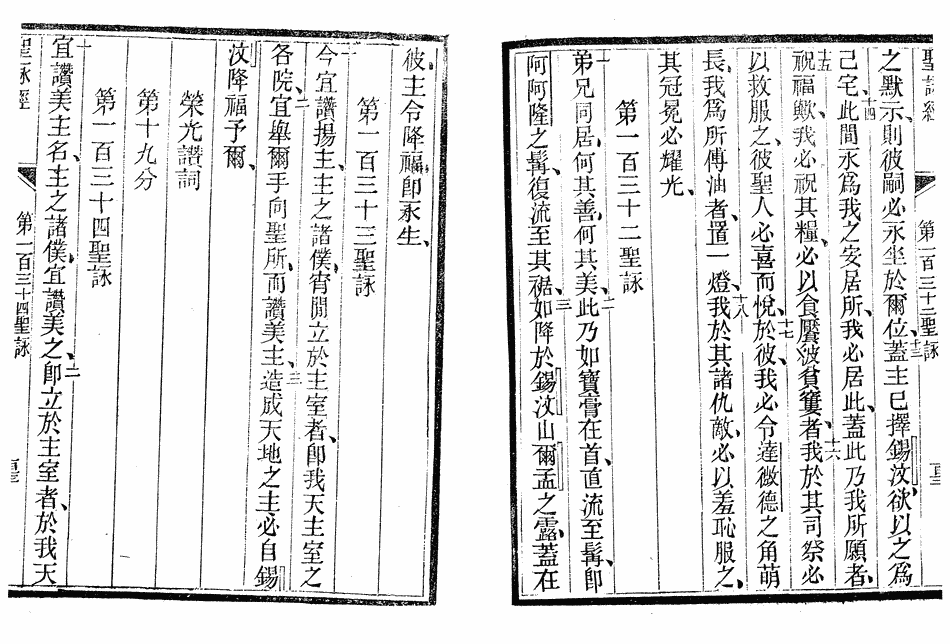 聖詠經
第一百三十二聖詠
之默示、則彼嗣必永坐於爾位、十三蓋主已擇錫汶、欲以之爲
己宅、十四此間永爲我之安居所、我必居此、蓋此乃我所願者、
十五祝福歟、我必祝其糧、必以食饜彼貧窶者、十六我於其司祭、必
以救服之、彼聖人必喜而悅於彼、十七我必令達微德之角萌
長、我爲所傅油者、置一燈、十八我於其諸仇敵、必以羞恥服之、
其冠冕必耀光、
第一百三十二聖詠
一弟兄同居、何其善、何其美、二此乃如寶膏在首、直流至髯、卽
阿阿隆之髯、復流至其裾、三如降於錫汶山爾孟之露、蓋在
彼、主令降福、卽永生、
第一百三十三聖詠
一今宜讚揚主、主之諸僕、宵間立於主室者、卽我天主室之
各院、二宜舉爾手向聖所、而讚美主、三造成天地之主、必自錫
汶降福予爾、
榮光讚詞
第十九分
第一百三十四聖詠
一宜讚美主名、主之諸僕、宜讚美之、二卽立於主室者、於我天
聖詠經
第一百三十四聖詠